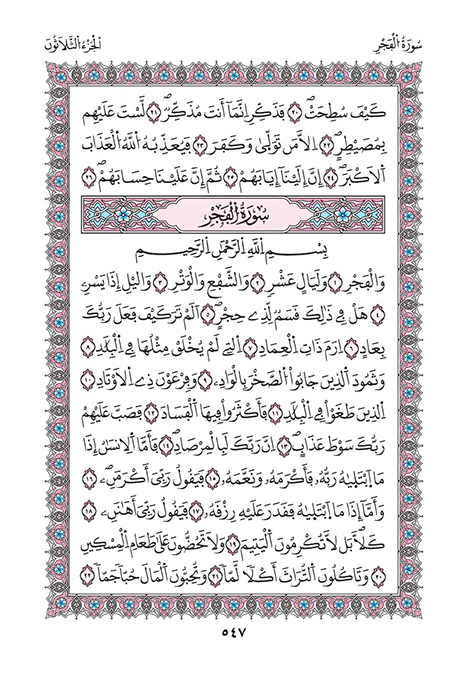 سُورَةُ الْفَجْرِ
الْجُزْءُ الثَّلَاثُونَ
كَيْفَ سُطِحَتْ ٢٠ فَذَكِّرِ انَّمَا أَنتَ مُذَكِّرٌ ٢١ لَّسْتَ عَلَيْهِم
بِمُصَيْطِرٍ ٢٢ اِلَّا مَن تَوَلَّىٰ وَكَفَرَ ٢٣ فَيُعَذِّبُهُ اللَّهُ الْعَذَابَ
اَلَاكْبَرَ ٢٤ إِنَّ إِلَيْنَا إِيَابَهُمْ ٢٥ ثُمَّ إِنَّ عَلَيْنَا حِسَابَهُم ٢٦
سُورَةُ الْفَجْرِ
بِسْمِ اللَّهِ الرَّحْمَٰنِ الرَّحِيمِ
وَالْفَجْرِ ١ وَلَيَالٍ عَشْرٍ ٢ وَالشَّفْعِ وَالْوَتْرِ ٣ وَالَّيْلِ إِذَا يَسْرِۦ
٤ هَلْ فِي ذَٰلِكَ قَسَمٌ لِّذِي حِجْرٍ ٥ اَلَمْ تَرَ كَيْفَ فَعَلَ رَبُّكَ
بِعَادٍ ٦ اِرَمَ ذَاتِ الْعِمَادِ ٧ اِلتِي لَمْ يُخْلَقْ مِثْلُهَا فِي الْبِلَٰدِ ٨
وَثَمُودَ اَلذِينَ جَابُوا الصَّخْرَ بِالْوَادِۦ ٩ وَفِرْعَوْنَ ذِي الَاوْتَادِ ١٠
اِلذِينَ طَغَوْا فِي الْبِلَٰدِ ١١ فَأَكْثَرُوا فِيهَا الْفَسَادَ ١٢ فَصَبَّ عَلَيْهِمْ
رَبُّكَ سَوْطَ عَذَابٍ ١٣ اِنَّ رَبَّكَ لَبِالْمِرْصَادِ ١٤ فَأَمَّا اَلِانسَٰنُ إِذَا
مَا اَبْتَلَيٰهُ رَبُّهُۥ فَأَكْرَمَهُۥ وَنَعَّمَهُۥ ١٥ فَيَقُولُ رَبِّيَ أَكْرَمَنِۦ ١٦
وَأَمَّا إِذَا مَا اَبْتَلَيٰهُ فَقَدَرَ عَلَيْهِ رِزْقَهُۥ ١٧ فَيَقُولُ رَبِّيَ أَهَٰنَنِۦ ١٨
كَلَّا بَل لَّا تُكْرِمُونَ الْيَتِيمَ ١٩ وَلَا تَحُضُّونَ عَلَىٰ طَعَامِ الْمِسْكِينِ
٢٠ وَتَاكُلُونَ التُّرَاثَ أَكْلًا لَّمًّا ٢١ وَتُحِبُّونَ الْمَالَ حُبًّا جَمًّا ٢٢
٥٤٧